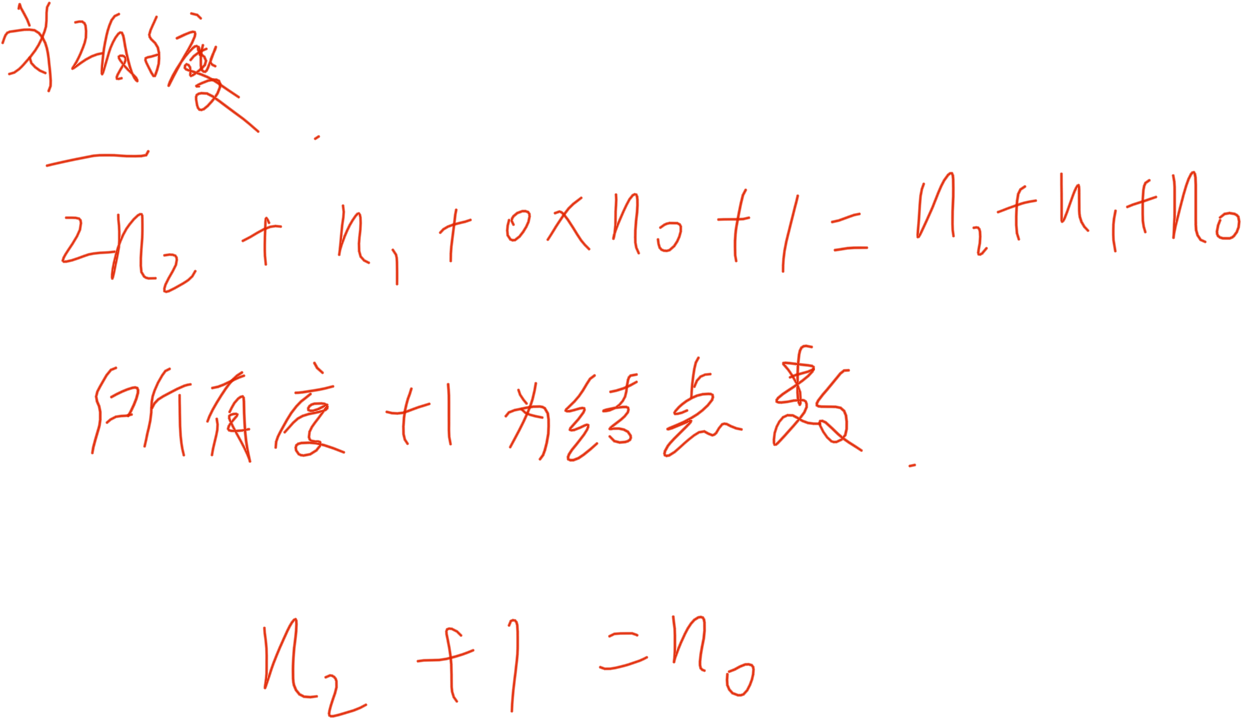 为2的度
2n₂ + n₁ + 0×n₀ + 1 = n₂+n₁+n₀
所有度 +1 为结点数.
n₂ +1 =n₀